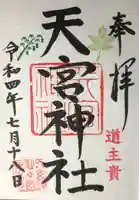 奉拝
道主貴
天宮神社
令和四年七月十八日